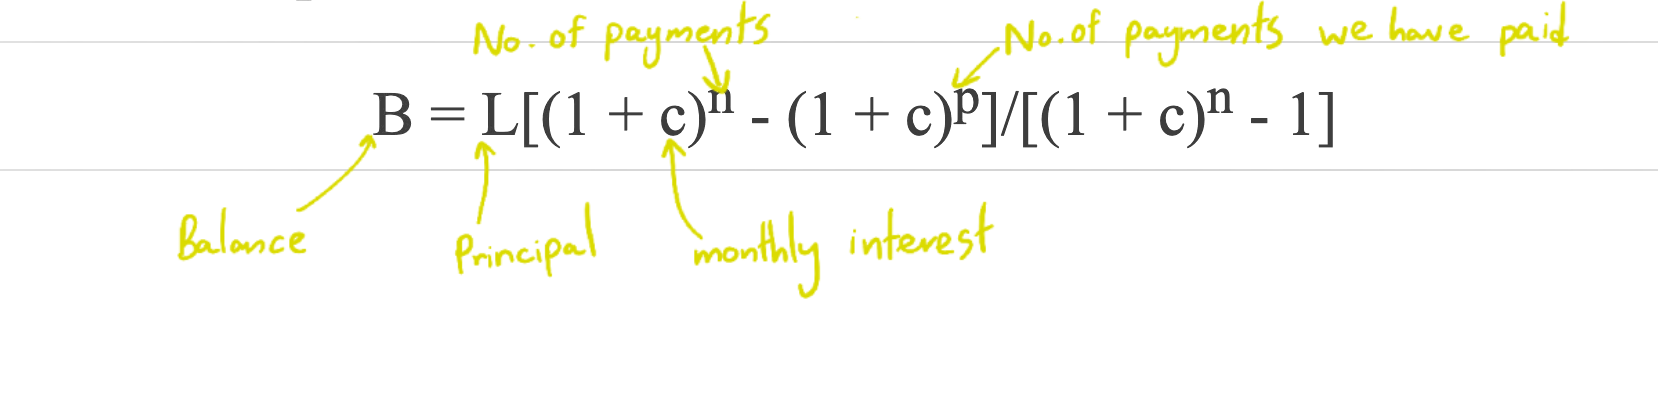 No. of payments No. of payments we have paid
B = L[(1 + c)^n - (1 + c)^p]/[(1 + c)^n - 1]
Balance Principal monthly interest